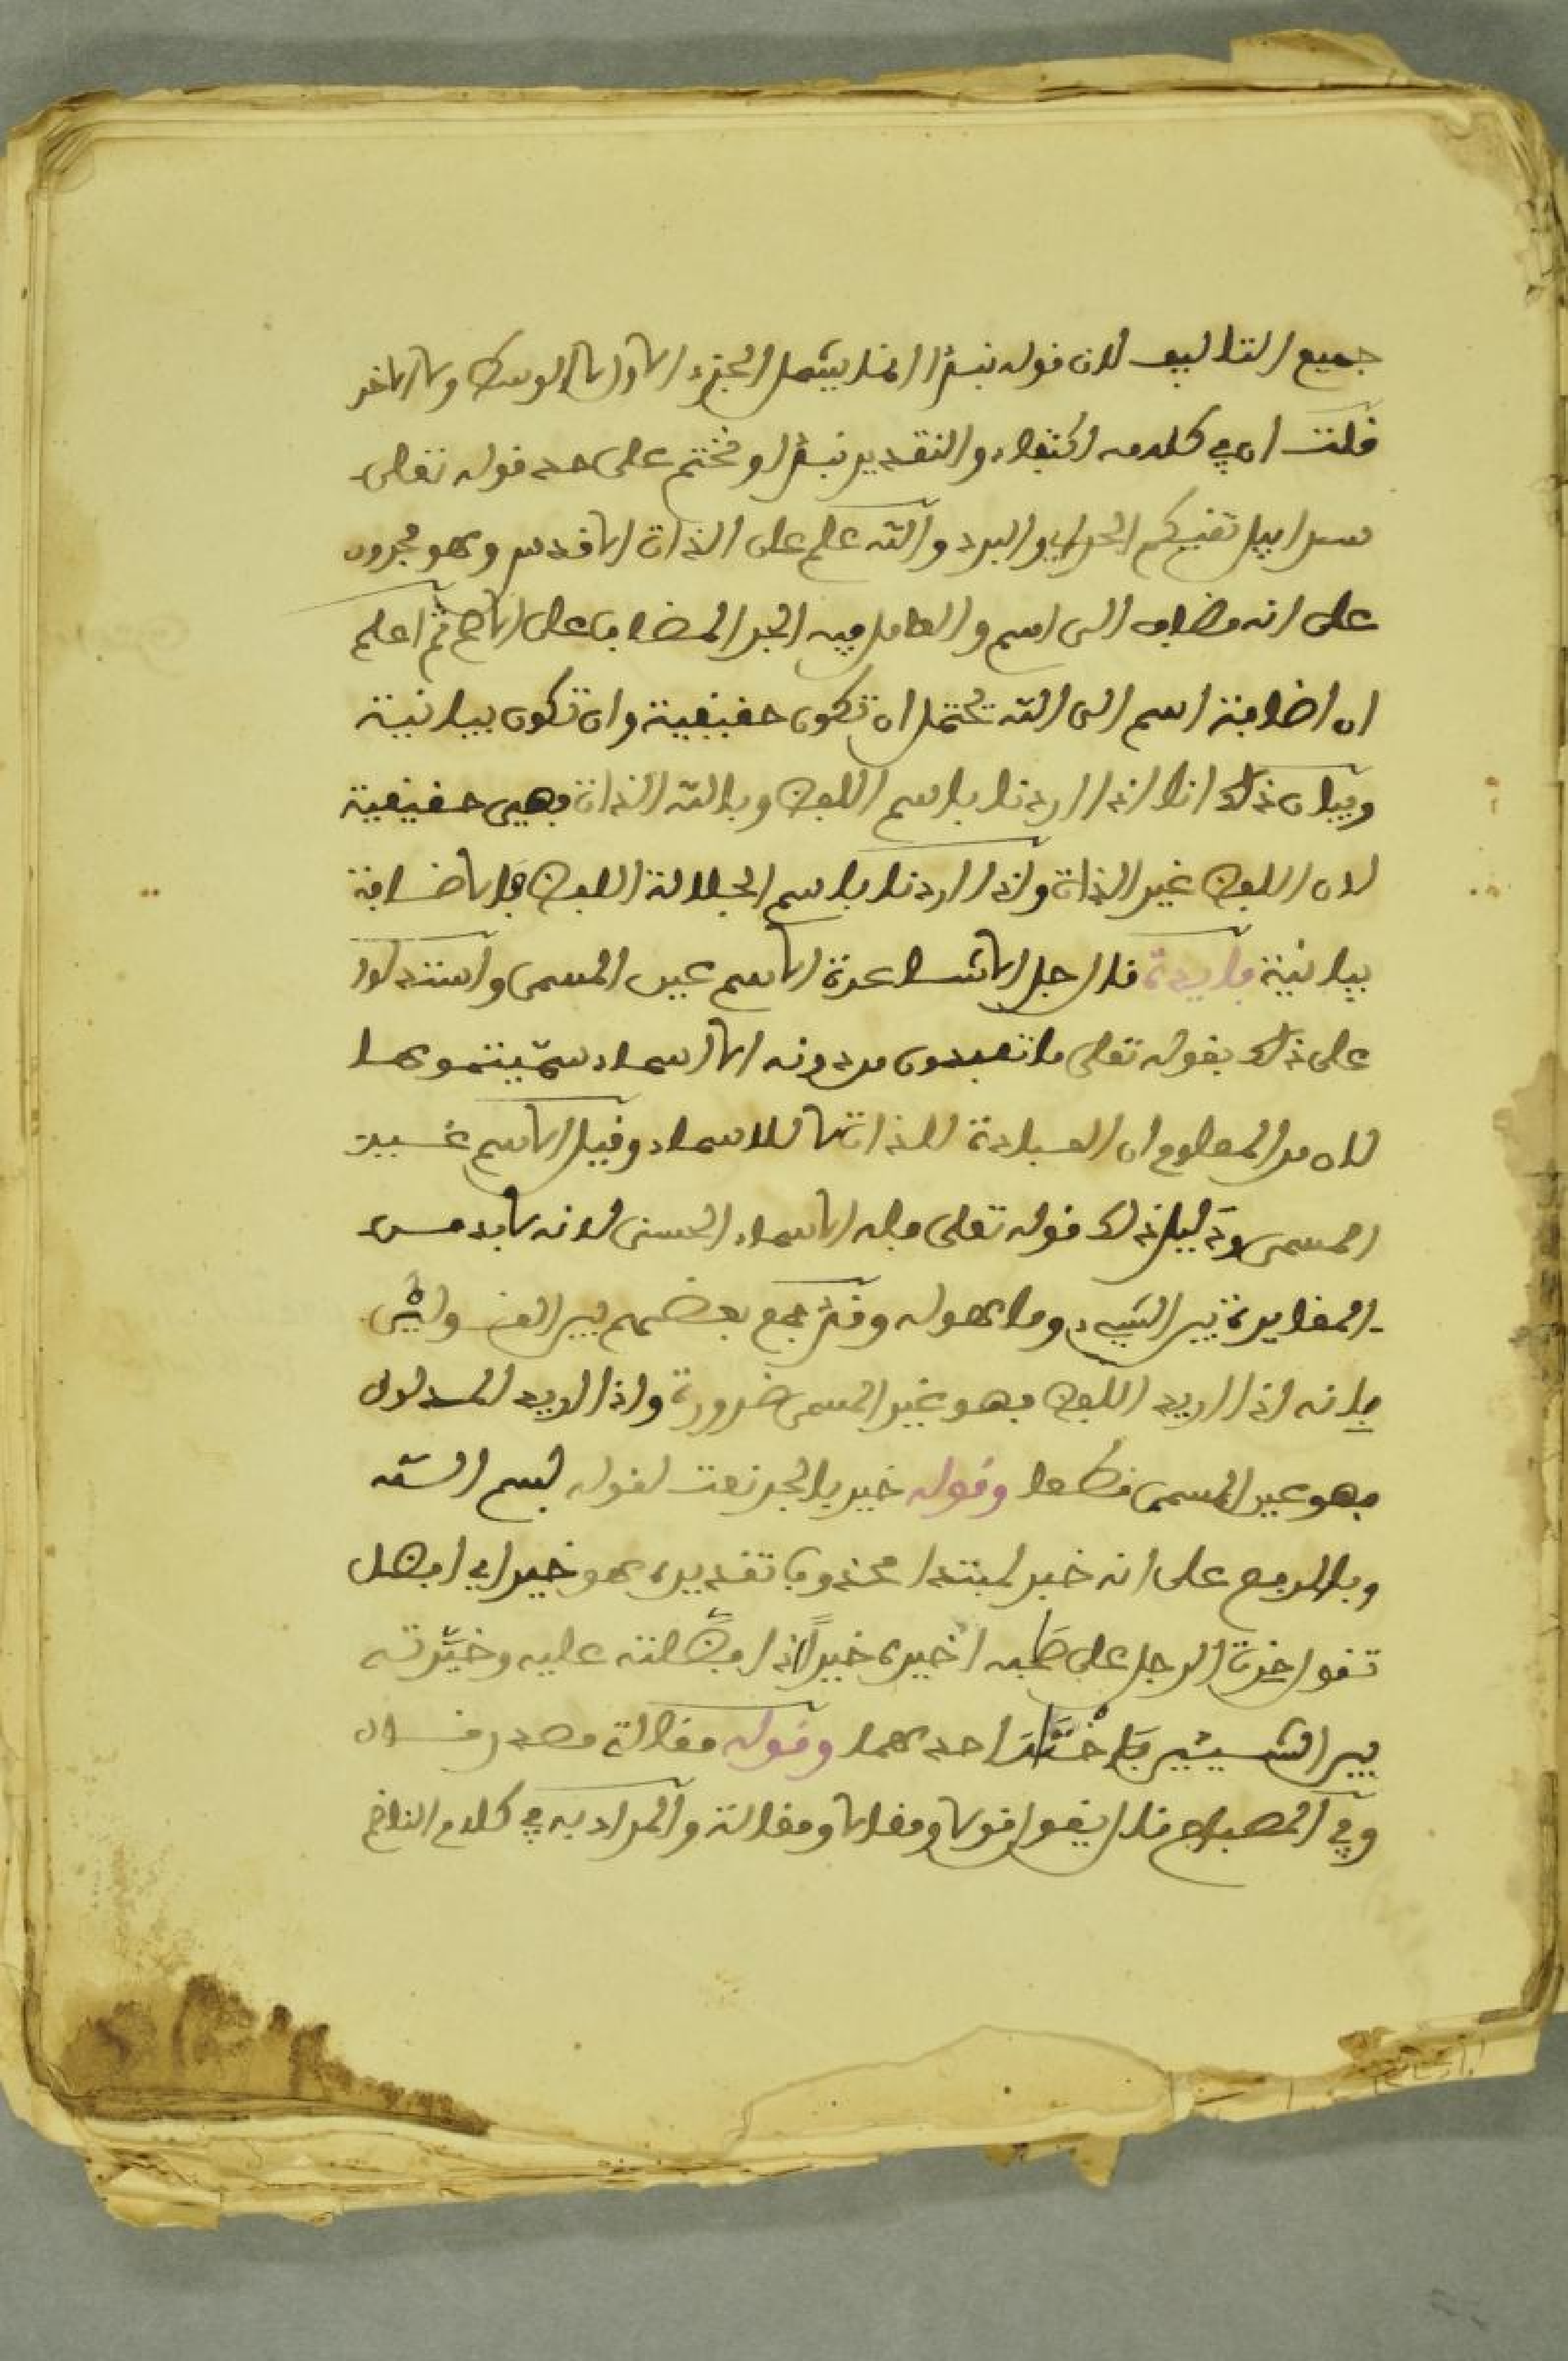 جميع التاليف لان قوله نبدأ انما يشمل الجزء الاول لا الوسط ولا الاخر
قلت ان في كلامه اكتفاء والتقدير نبدأ ونختتم على حد قوله تعلى
سرابيل تقيكم الحر اي والبرد والله علم على الذات الاقدس وهو مجرور
على انه مضاف الى اسم والعامل فيه الجر المضاف على الاصح ثم اعلم
ان اضافة اسم الى الله يحتمل ان تكون حقيقية وان تكون بيانية
وبيان ذلك انا اذا اردنا باسم اللفظ وبالله الذات فهي حقيقية
لان اللفظ غير الذات واذا اردنا باسم الجلالة اللفظ فالاضافة
بيانية فايدة قال جل الاشاعرة الاسم عين المسمى واستدلوا
على ذلك بقوله تعلى ما تعبدون من دونه الا اسماء سميتموها
لان من المعلوم ان العبادة للذات لا للاسماء وقيل الاسم غير
المسمى ودليل ذلك قوله تعلى فله الاسماء الحسنى لانه لا بد من
المغايرة بين الشيء وما هو له وقد جمع بعضهم بين القولين
بانه اذا اريد اللفظ فهو غير المسمى ضرورة واذا اريد المدلول
فهو عين المسمى قطعا وقوله خير بالجر نعت لقوله بسم الله
وبالرفع على انه خبر لمبتدا محذوف تقديره هو خير اي افضل
تقول خرت الرجل على صحبه اخيره خيرا اذا فضلته عليه وخيّرته
بين الشيئين فاختار احدهما وقوله مقالة مصدر قال
وفي المصباح قال يقول قولا ومقالا ومقالة والمراد به في كلام الناظم